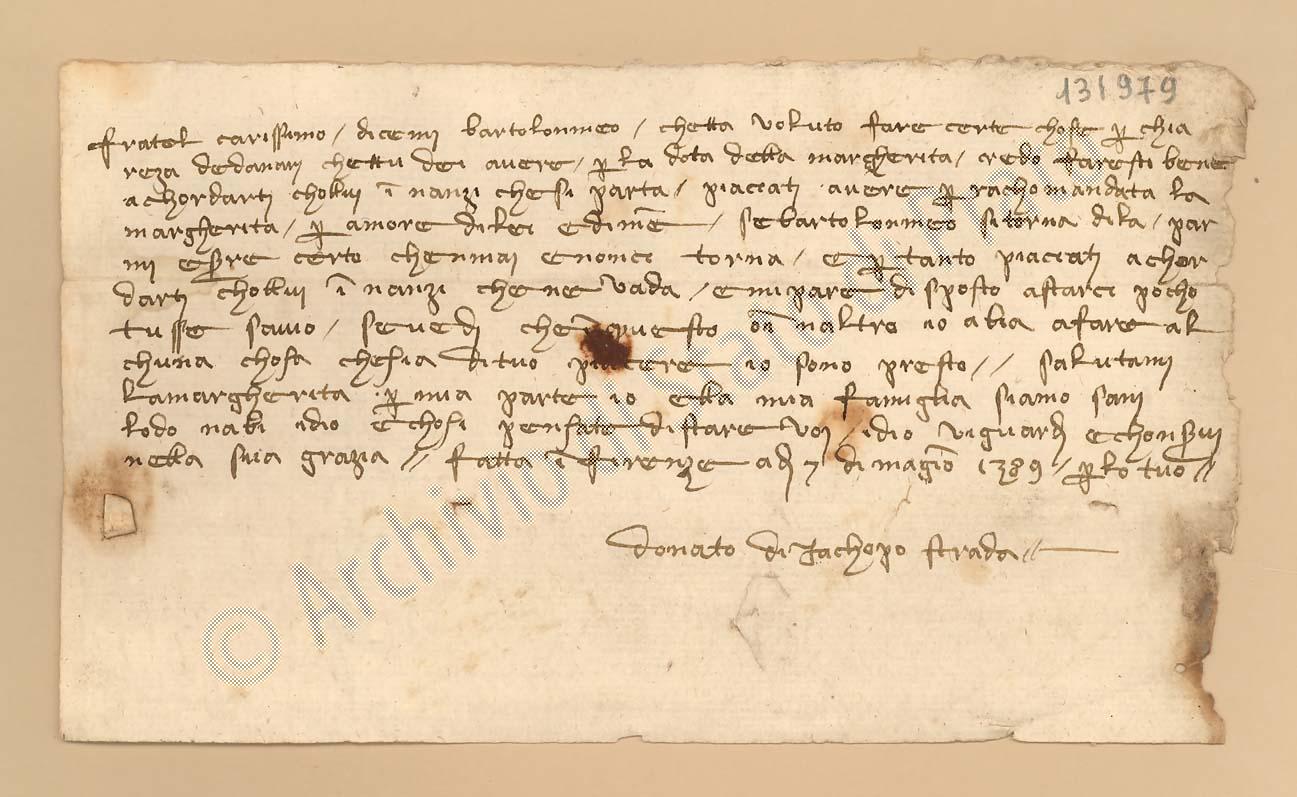 131979
fratel carissimo / dicemi bartolonmeo / chetta voluto fare certe chose p chia
reza dedanari chettu dei avere / p la dota della margherita / credo faresti bene
achordarti chollui ī nanzi chesi parta / piacciati avere p rachomandata la
margherita / p amore dilei edimē / sebartolonmeo sitorna dila / par
mi esere certo chenmai enonci torna / e p tanto piacciati achor
darti chollui ī nanzi chene vada / emipare disposto astarci pocho
tusse savio / sevedi che questo naltro io abia afare al
chuna chosa chesia dituo piacere io sono presto // salutami
lamargherita p mia parte io ella mia famiglia siamo sani
lodo nabi idio echosi pensate distare voi / idio viguardi
nella sua grazia // fatta ī firenze adi 7 di magio 1389 / p lo tuo //
donato di Jachopo strada //
© Archivio di Stato di Prato